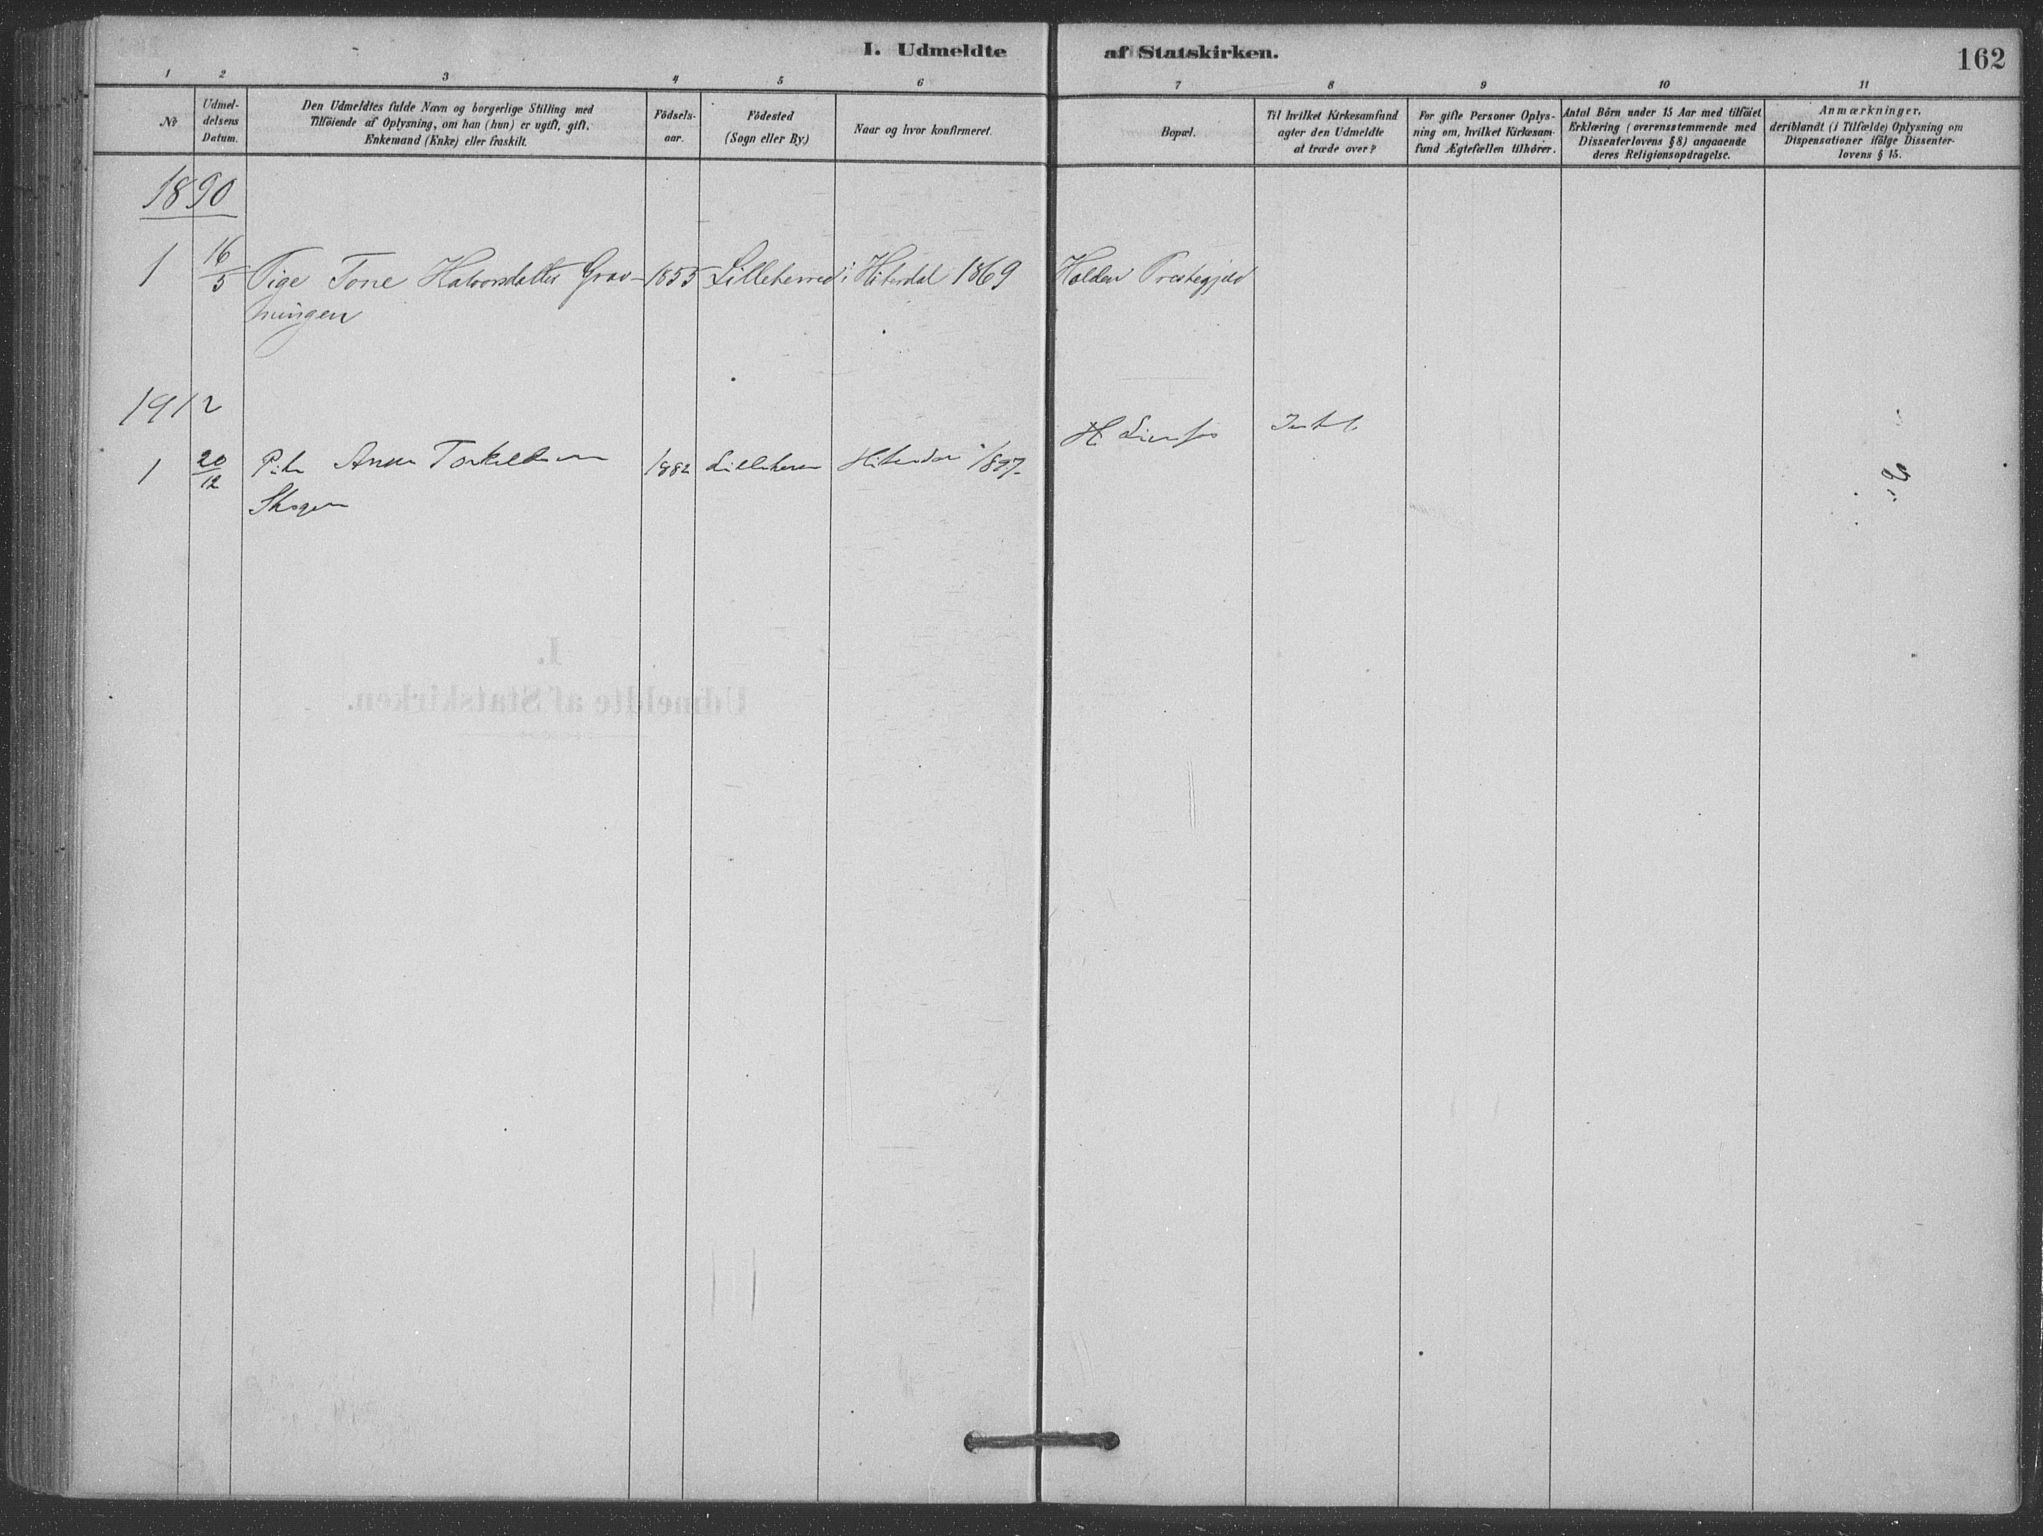 I. Udmeldte af Statskirken. 162
1 2 3 4 5 6 7 8 9 10 11
No
Udmel-
delsens
Datum.
Den Udmeldtes fulde Navn og borgerlige Stilling med
Tilföiende af Oplysning, om han (hun) er ugift, gift,
Enkemand (Enke) eller fraskilt.
Födsels-
aar.
Födested
(Sogn eller By)
Naar og hvor konfirmeret.
Bopæl.
Til hvilket Kirkesamfund
agter den Udmeldte
at træde over?
For gifte Personer Oplys-
ning om, hvilket Kirkesam-
fund Ægtefællen tilhörer.
Antal Börn under 15 Aar med tilföiet
Erklæring (overensstemmende med
Dissenterlovens § 8) angaaende
deres Religionsopdragelse.
Anmærkninger,
deriblandt (i Tilfælde) Oplysning om
Dispensationer ifölge Dissenter-
lovens § 15.
1890
1 16/5 Pige Tone Halvorsdatter Grav- 1855 Lilleherred i Hiterdal 1869 Holden Prestegjeld
ningen
1912
1 20/12 Anne Torkildsen 1882 Lilleherr Hiterdal 1897
Skogen
I.
Udmeldte af Statskirken.